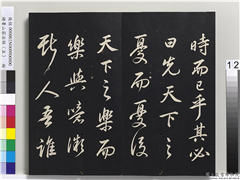 時而已乎其必
曰先天下之
憂而憂後
天下之樂而
樂與噫微
斯人吾誰
12